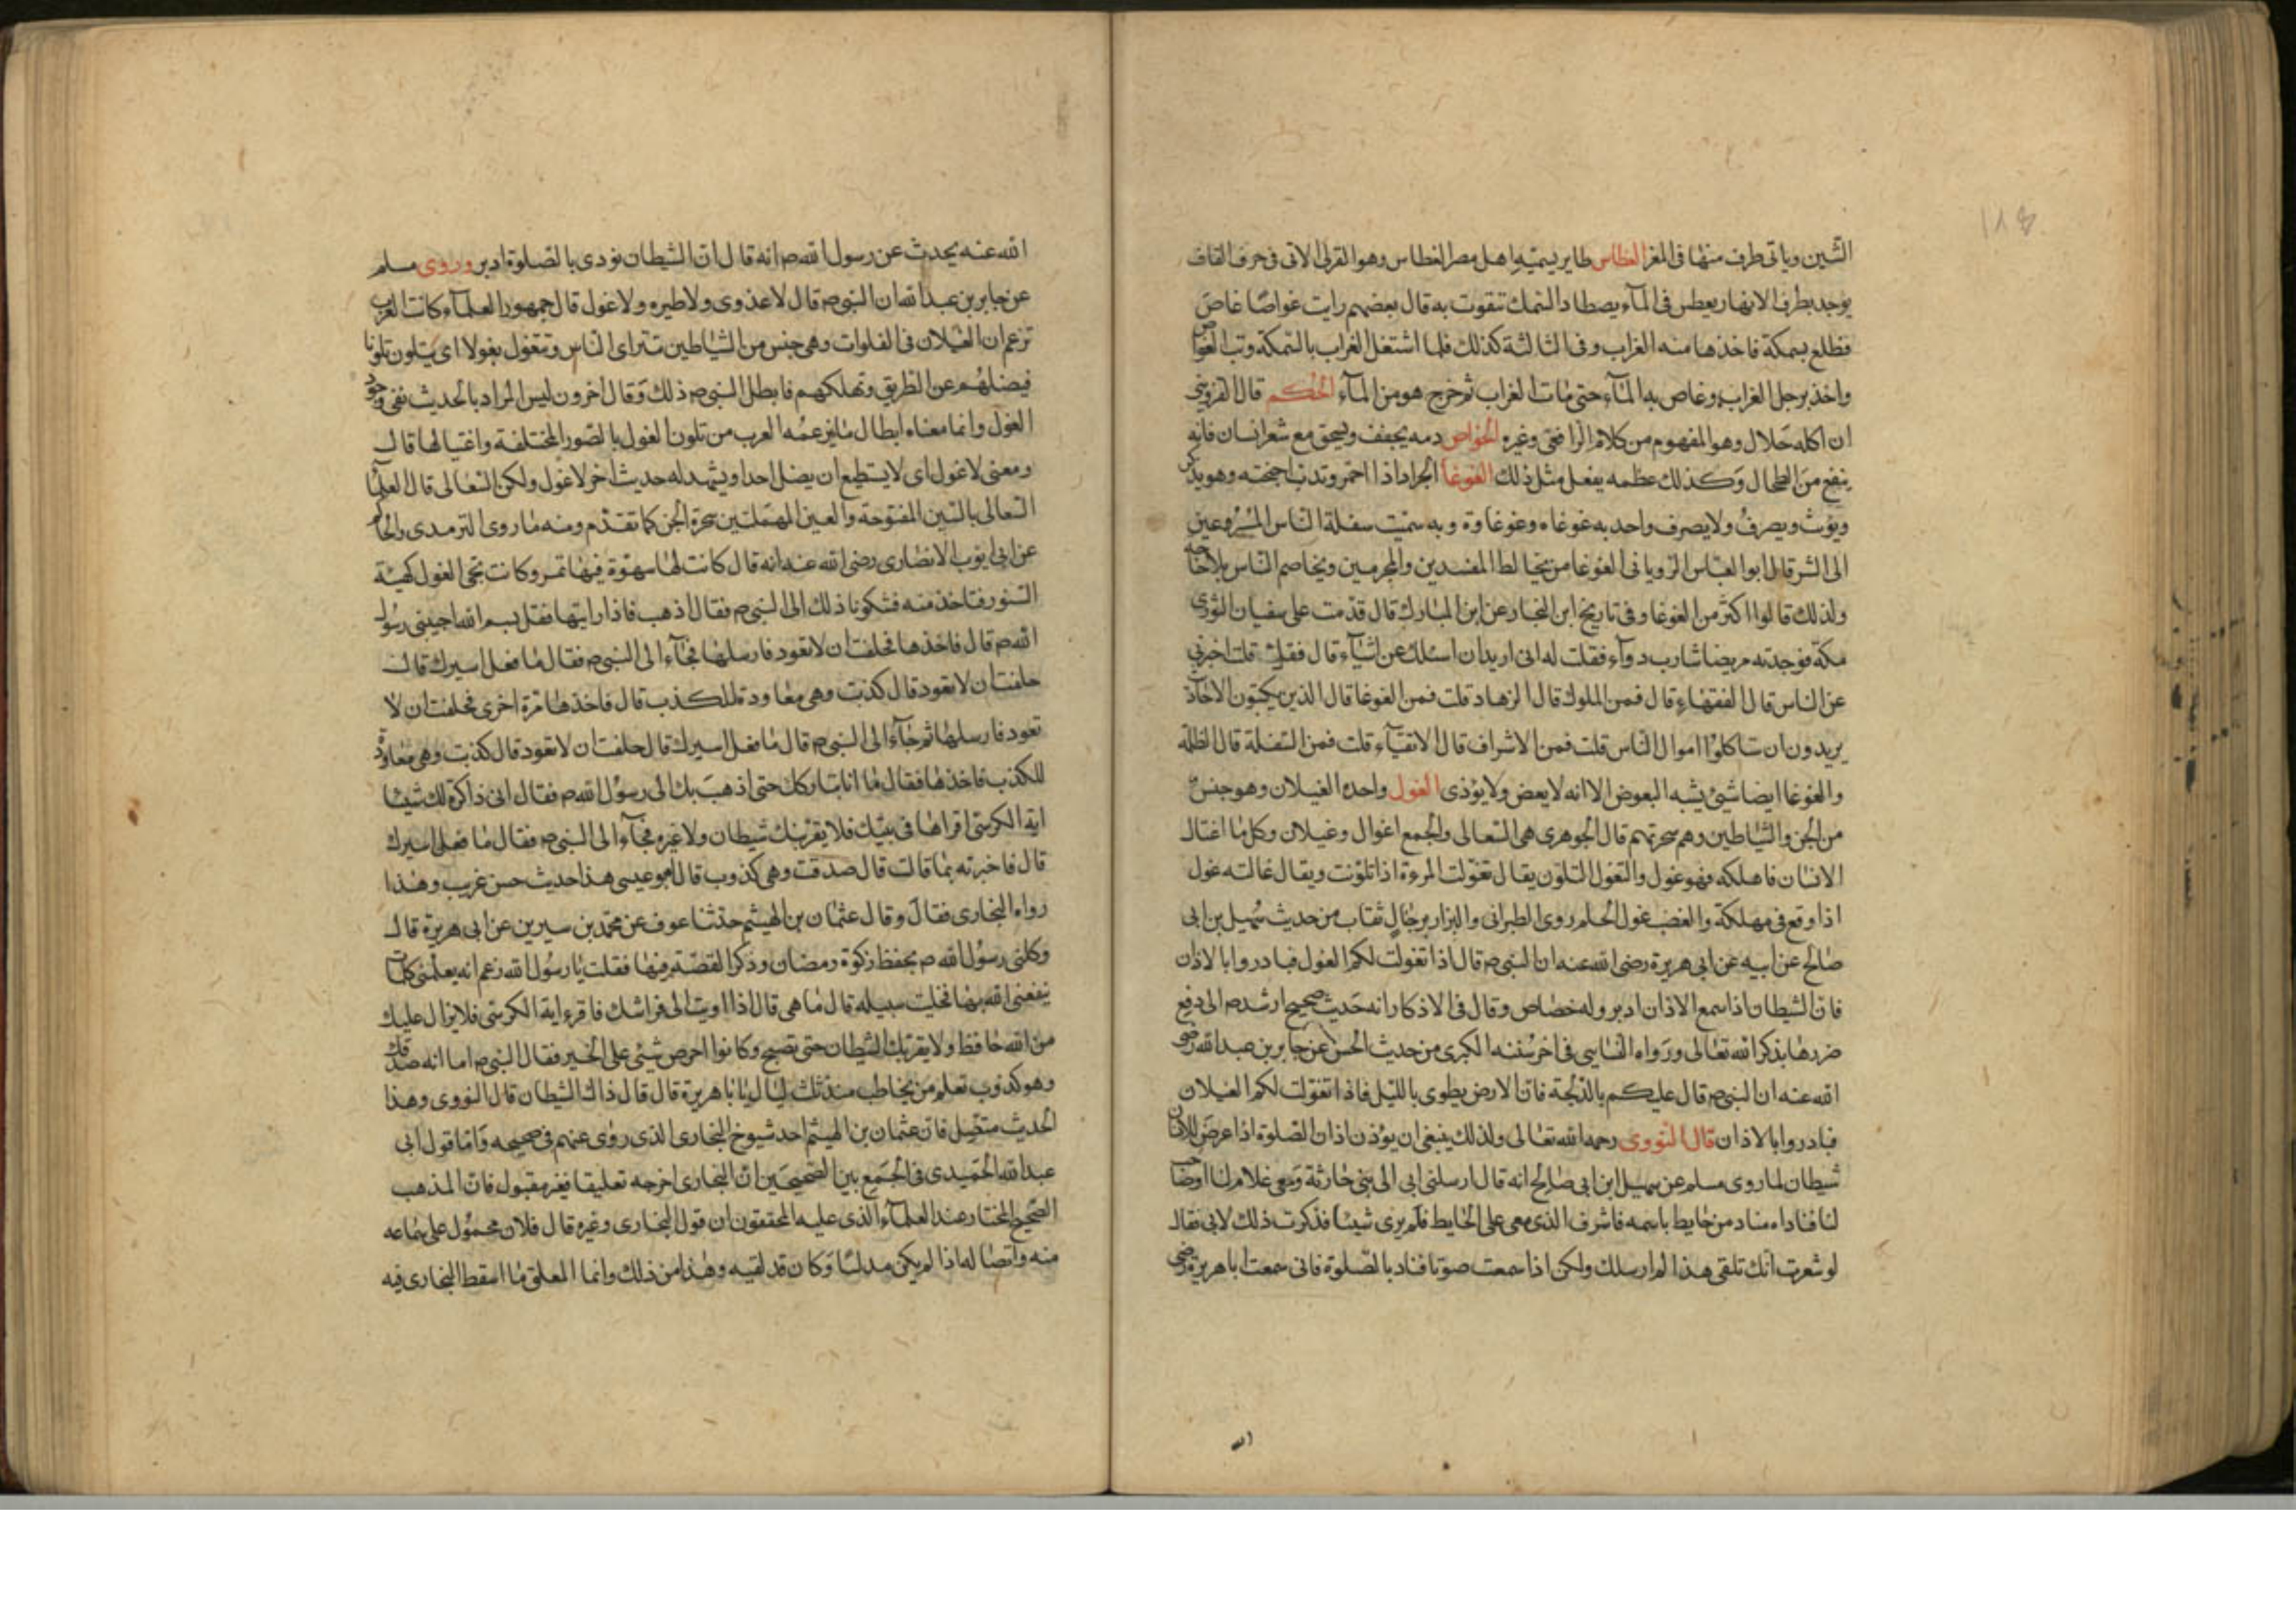 الشين وياتى طرف منها فى المغر الغطاس طاير يسميه اهل مصر الغطاس وهو القرلى الاتى فى حرف القاف
يوجد بطرف الانهار يغطس فى المآء يصطاد السمك تتقوت به قال بعضهم رايت غواصا غاص
فطلع بسمكة فاخذها منه الغراب وفى الثالثة كذلك فلما اشتغل الغراب بالسمكة وثب الغواص
واخذ برجل الغراب وغاص به المآء حتى مات الغراب ثم خرج هو من المآء الحكم قال القزوينى
ان اكله حلال وهو المفهوم من كلام الرافعى وغيره الخواص دمه يجفف ويسحق مع شعر انسان فانه
ينفع من الطحال وكذلك عظمه يفعل مثل ذلك الغوغا الجراد اذا احمر وتدبت اجنحته وهو يذكر
ويؤنث ويصرف ولا يصرف واحد به غوغاه وغوغاوة وبه سميت سفلة الناس المسرعين
الى الشر قال ابو العباس الرويانى الغوغا من يخالط المفسدين والمجرمين ويخاصم الناس بلا حاجه
ولذلك قالوا اكثر من الغوغا وفى تاريخ ابن النجار عن ابن المبارك قال قدمت على سفيان الثورى
مكة فوجدته مريضا شارب دوآء فقلت له انى اريد ان اسئلك عن اشيآء قال فقل قلت اخبرنى
عن الناس قال الفقهاء قال فمن الملوك قال الزهاد قلت فمن الغوغا قال الذين يكتبون الاحاد
يريدون ان تاكلوا اموال الناس قلت فمن الاشراف قال الاتقيآء قلت فمن السفلة قال الظلمة
والغوغا ايضا شئ يشبه البعوض الا انه لا يعض ولا يؤذى الغول واحد الغيلان وهو جنس
من الجن والشياطين وهم سحرتهم قال الجوهرى هى السعالى والجمع اغوال وغيلان وكل ما اغتال
الانسان فاهلكه فهو غول والتغول التلون يقال تغولت المرءة اذا تلونت ويقال غالته غول
اذا وقع فى مهلكة والغضب غول الحلم روى الطبرانى والبزار برجال ثقات من حديث سهيل بن ابى
صالح عن ابيه عن ابى هريرة رضى الله عنه ان النبى ص قال اذا تغولت لكم الغول فبادروا بالاذان
فان الشيطان اذا سمع الاذان ادبر وله خصاص وقال فى الاذكار انه حديث صحيح ارشد ص الى دفع
ضررها بذكر الله تعالى ورواه النساسى فى اخر سننه الكبرى من حديث الحسن عن جابر بن عبد الله رضى
الله عنه ان النبى ص قال عليكم بالدلجة فان الارض يطوى بالليل فاذا تغولت لكم الغيلان
فبادروا بالاذان قال النووى رحمه الله تعالى ولذلك ينبغى ان يؤذن اذان الصلوة اذا عرض للانسان
شيطان لما روى مسلم عن سهيل ابن ابى صالح انه قال ارسلنى ابى الى بنى حارثة ومعى غلام لنا او صاحب
لنا فناداه مناد من حايط باسمه فاشرف الذى معى على الحايط فلم يرى شيئا فذكرت ذلك لابى فقال
لو شعرت انك تلقى هذا لم ارسلك ولكن اذا سمعت صوتا فناد بالصلوة فانى سمعت ابا هريرة رضى
الله
الله عنه يحدث عن رسول الله ص انه قال ان الشيطان نودى بالصلوة ادبر وروى مسلم
عن جابر بن عبد الله ان النبى ص قال لا عدوى ولا طيره ولا غول قال جمهور العلمآء كانت العرب
تزعم ان الغيلان فى الفلوات وهى جنس من الشياطين تترآى الناس وتتغول بغولا اى يتلون تلونا
فيضلهم عن الطريق وتهلكهم فابطل النبى ص ذلك وقال اخرون ليس المراد بالحديث نفى وجود
الغول وانما معناه ابطال ما يزعمه العرب من تلون الغول بالصور المختلفة واغتيالها قال
ومعنى لا غول اى لا يستطيع ان يضل احدا ويشهد له حديث اخر لا غول ولكن السعالى قال العلمآء
السعالى بالسين المفتوحة والعين المهملتين سحرة الجن كما تقدم ومنه ما روى الترمدى والحاكم
عن ابى ايوب الانصارى رضى الله عنه انه قال كانت لها سهوة فيها تمر وكانت تجئ الغول كهيئة
السنور فتاخذ منه فشكونا ذلك الى النبى ص فقال اذهب فاذا رايتها فقل بسم الله اجيبى رسول
الله ص قال فاخذها فحلفت ان لا تعود فارسلها فجآء الى النبى ص فقال ما فعل اسيرك قال
حلفت ان لا تعود قال كذبت وهى معاودة للكذب قال فاخذها مرة اخرى فحلفت ان لا
تعود فارسلها ثم جآء الى النبى ص قال ما فعل اسيرك قال حلفت ان لا تعود قال كذبت وهى معاودة
للكذب فاخذها فقال ما انا بتاركك حتى اذهب بك الى رسول الله ص فقال انى ذاكرة لك شيئا
اية الكرسى اقراها فى بيتك فلا يقربنك شيطان ولا غيره فجآء الى النبى ص فقال ما فعل اسيرك
قال فاخبرته بما قالت قال صدقت وهى كذوب قال ابو عيسى هذا حديث حسن غريب وهذا
رواه البخارى فقال وقال عثمان بن الهيثم حدثنا عوف عن محمد بن سيرين عن ابى هريرة قال
وكلنى رسول الله ص بحفظ زكوة رمضان وذكر القصة وفيها فقلت يا رسول الله زعم انه يعلمنى كلمات
ينفعنى الله بها فخليت سبيله قال ما هى قال اذا اويت الى فراشك فاقرء اية الكرسى فلا يزال عليك
من الله حافظ ولا يقربك الشيطان حتى تصبح وكانوا احرص شئ على الخير فقال النبى ص اما انه صدقك
وهو كذوب تعلم من يخاطب منذ ثلث ليال يا ابا هريرة قال قال ذاك الشيطان قال النووى وهذا
الحديث متصل فان عثمان بن الهيثم احد شيوخ البخارى الذى روى عنهم فى صحيحه واما قول ابى
عبد الله الحميدى فى الجمع بين الصحيحين ان البخارى اخرجه تعليقا فغير مقبول فان المذهب
الصحيح المختار عند العلمآء الذى عليه المحققون ان قول البخارى وغيره قال فلان محمول على سماعه
منه واتصاله اذا لم يكن مدلسا وكان قد لقيه وهذا من ذلك وانما المعلق ما اسقط البخارى فيه